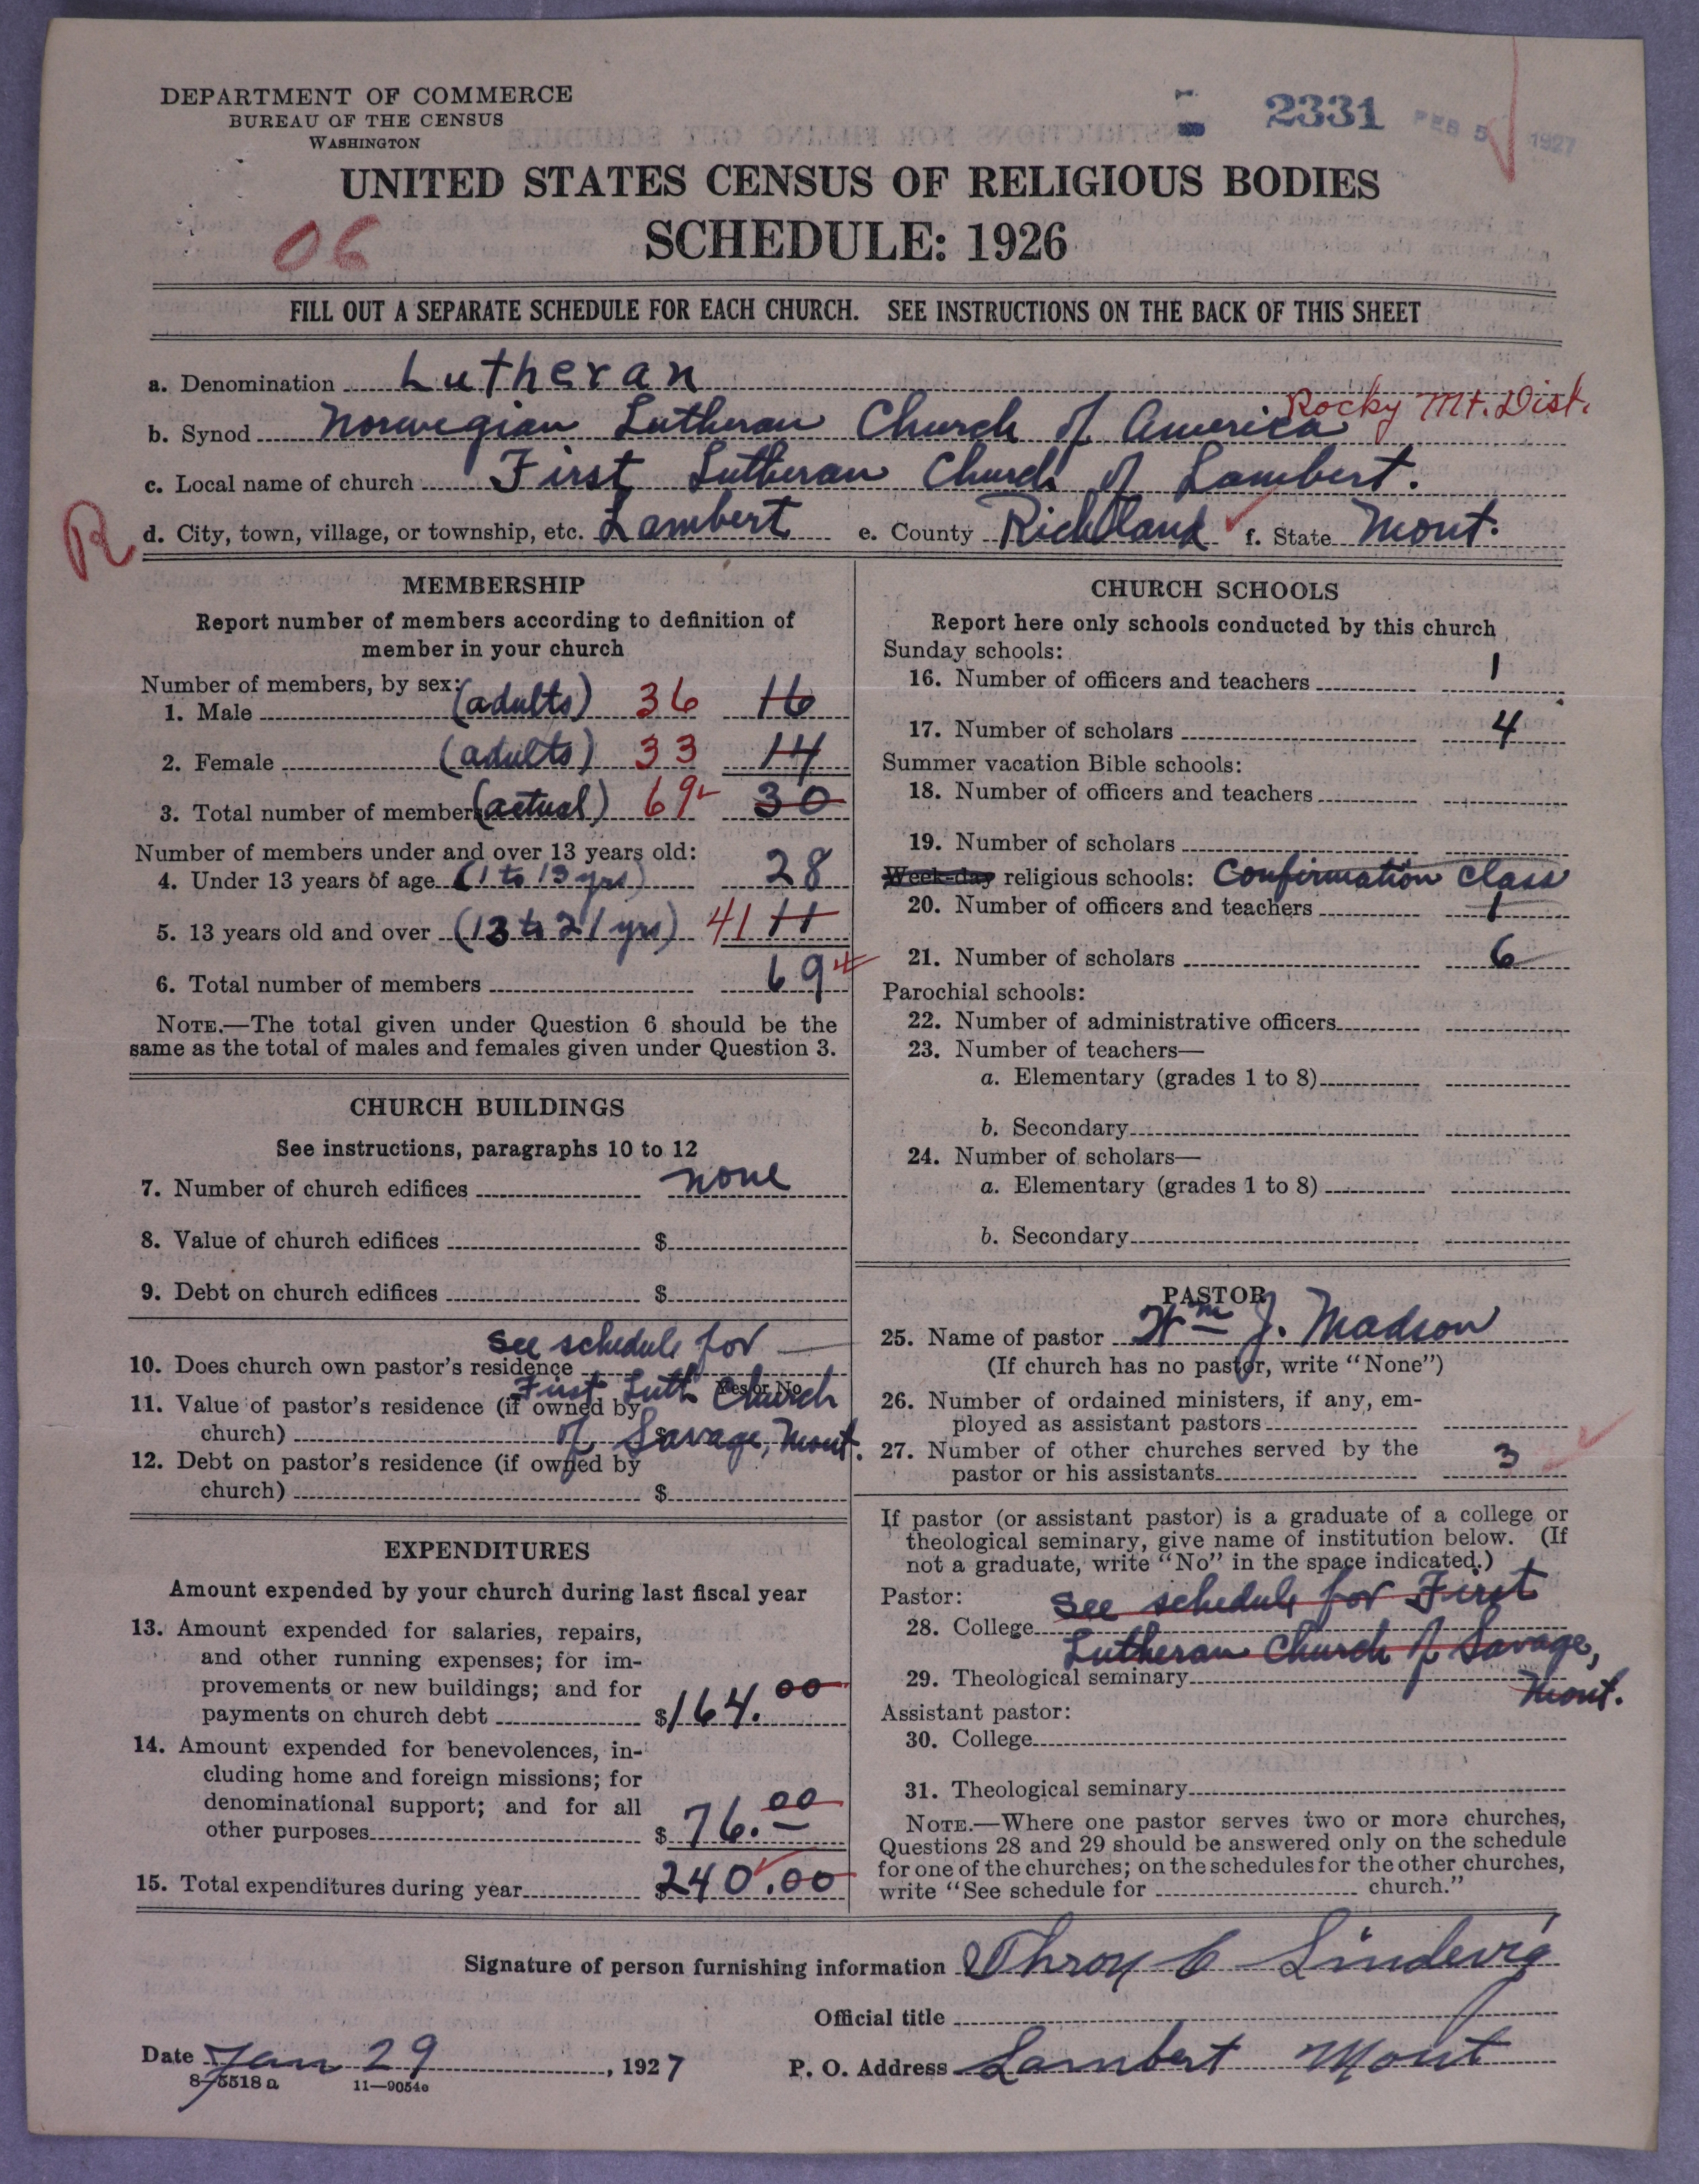 DEPARTMENT OF COMMERCE
BUREAU OF THE CENSUS
WASHINGTON
2331
FEB 5 1927
UNITED STATES CENSUS OF RELIGIOUS BODIES
06
SCHEDULE: 1926
FILL OUT A SEPARATE SCHEDULE FOR EACH CHURCH. SEE INSTRUCTIONS ON THE BACK OF THIS SHEET
a. Denomination Lutheran
Rocky Mt. Dist.
b. Synod Norwegian Lutheran Church of America
c. Local name of church First Lutheran Church of Lambert.
R
d. City, town, village, or township, etc. Lambert e. County Richland f. State Mont.
MEMBERSHIP
Report number of members according to definition of
member in your church
Number of members, by sex:
1. Male (adults) 36 16
2. Female (adults) 33 14
3. Total number of members (actual) 69 30
Number of members under and over 13 years old:
4. Under 13 years of age (1 to 13 yrs) 28
5. 13 years old and over (13 to 21 yrs) 41 11
6. Total number of members 69
NOTE.—The total given under Question 6 should be the
same as the total of males and females given under Question 3.
CHURCH BUILDINGS
See instructions, paragraphs 10 to 12
7. Number of church edifices none
8. Value of church edifices $
9. Debt on church edifices $
see schedule for
10. Does church own pastor's residence
Yes or No
First Luth Church
11. Value of pastor's residence (if owned by
church) of Savage, Mont.
12. Debt on pastor's residence (if owned by
church) $
EXPENDITURES
Amount expended by your church during last fiscal year
13. Amount expended for salaries, repairs,
and other running expenses; for im-
provements or new buildings; and for
payments on church debt $164.00
14. Amount expended for benevolences, in-
cluding home and foreign missions; for
denominational support; and for all
other purposes $76.00
15. Total expenditures during year $240.00
CHURCH SCHOOLS
Report here only schools conducted by this church
Sunday schools:
16. Number of officers and teachers 1
17. Number of scholars 4
Summer vacation Bible schools:
18. Number of officers and teachers
19. Number of scholars
Week-day religious schools: Confirmation class
20. Number of officers and teachers 1
21. Number of scholars 6
Parochial schools:
22. Number of administrative officers
23. Number of teachers—
a. Elementary (grades 1 to 8)
b. Secondary
24. Number of scholars—
a. Elementary (grades 1 to 8)
b. Secondary
PASTOR
25. Name of pastor Wm J. Madson
(If church has no pastor, write "None")
26. Number of ordained ministers, if any, em-
ployed as assistant pastors
27. Number of other churches served by the
pastor or his assistants 3
If pastor (or assistant pastor) is a graduate of a college or
theological seminary, give name of institution below. (If
not a graduate, write "No" in the space indicated.)
Pastor:
see schedule for First
28. College
Lutheran Church of Savage,
29. Theological seminary
Mont.
Assistant pastor:
30. College
31. Theological seminary
NOTE.—Where one pastor serves two or more churches,
Questions 28 and 29 should be answered only on the schedule
for one of the churches; on the schedules for the other churches,
write "See schedule for church."
Signature of person furnishing information Lindevig
Official title
Date Jan 29, 1927
P. O. Address Lambert Mont
8-5518 a 11—9054e